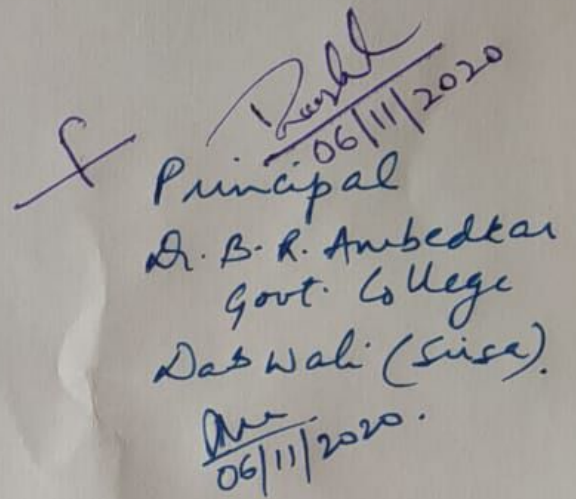 06/11/2020
Principal
Dr. B. R. Ambedkar
Govt. College
Dabwali (Sirsa).
06/11/2020.